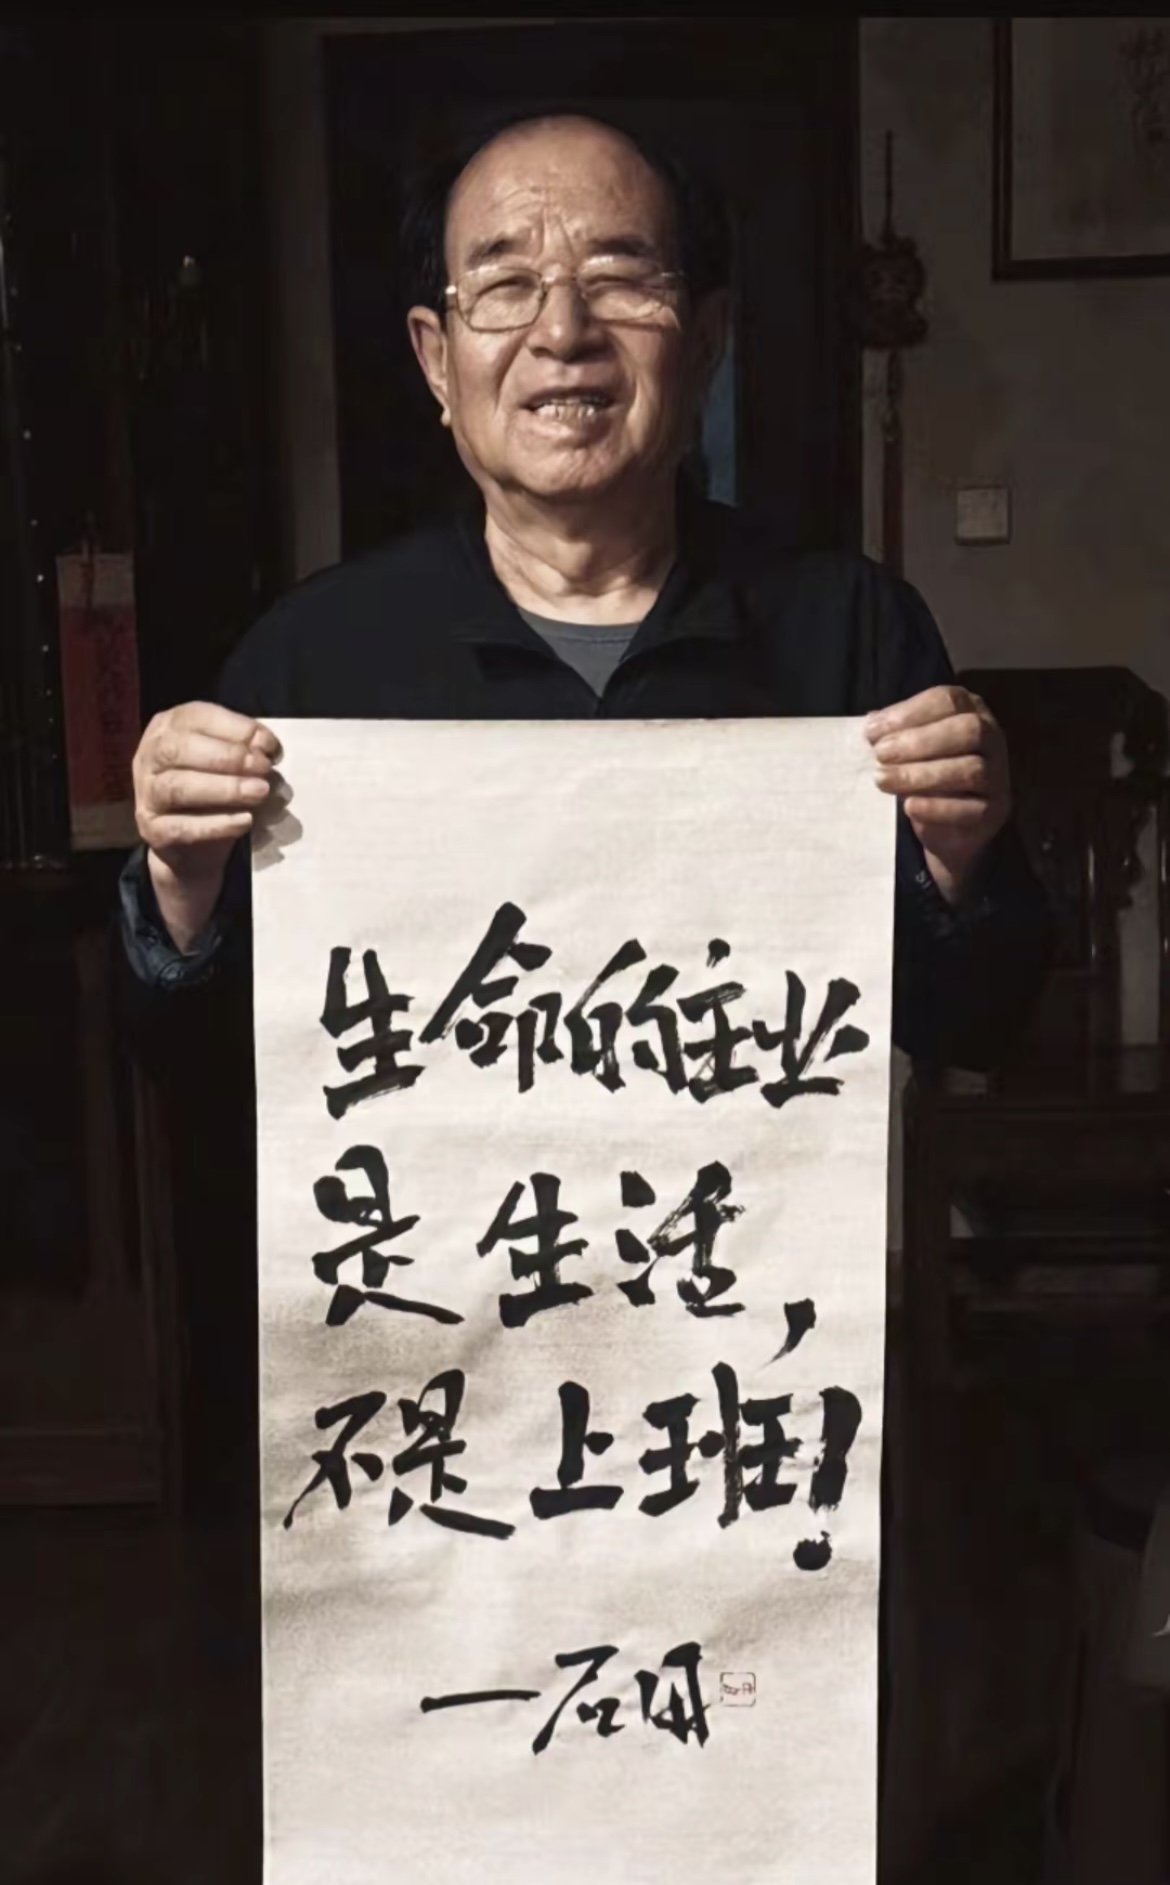 生命的主业
是生活，
不是上班！
一石田